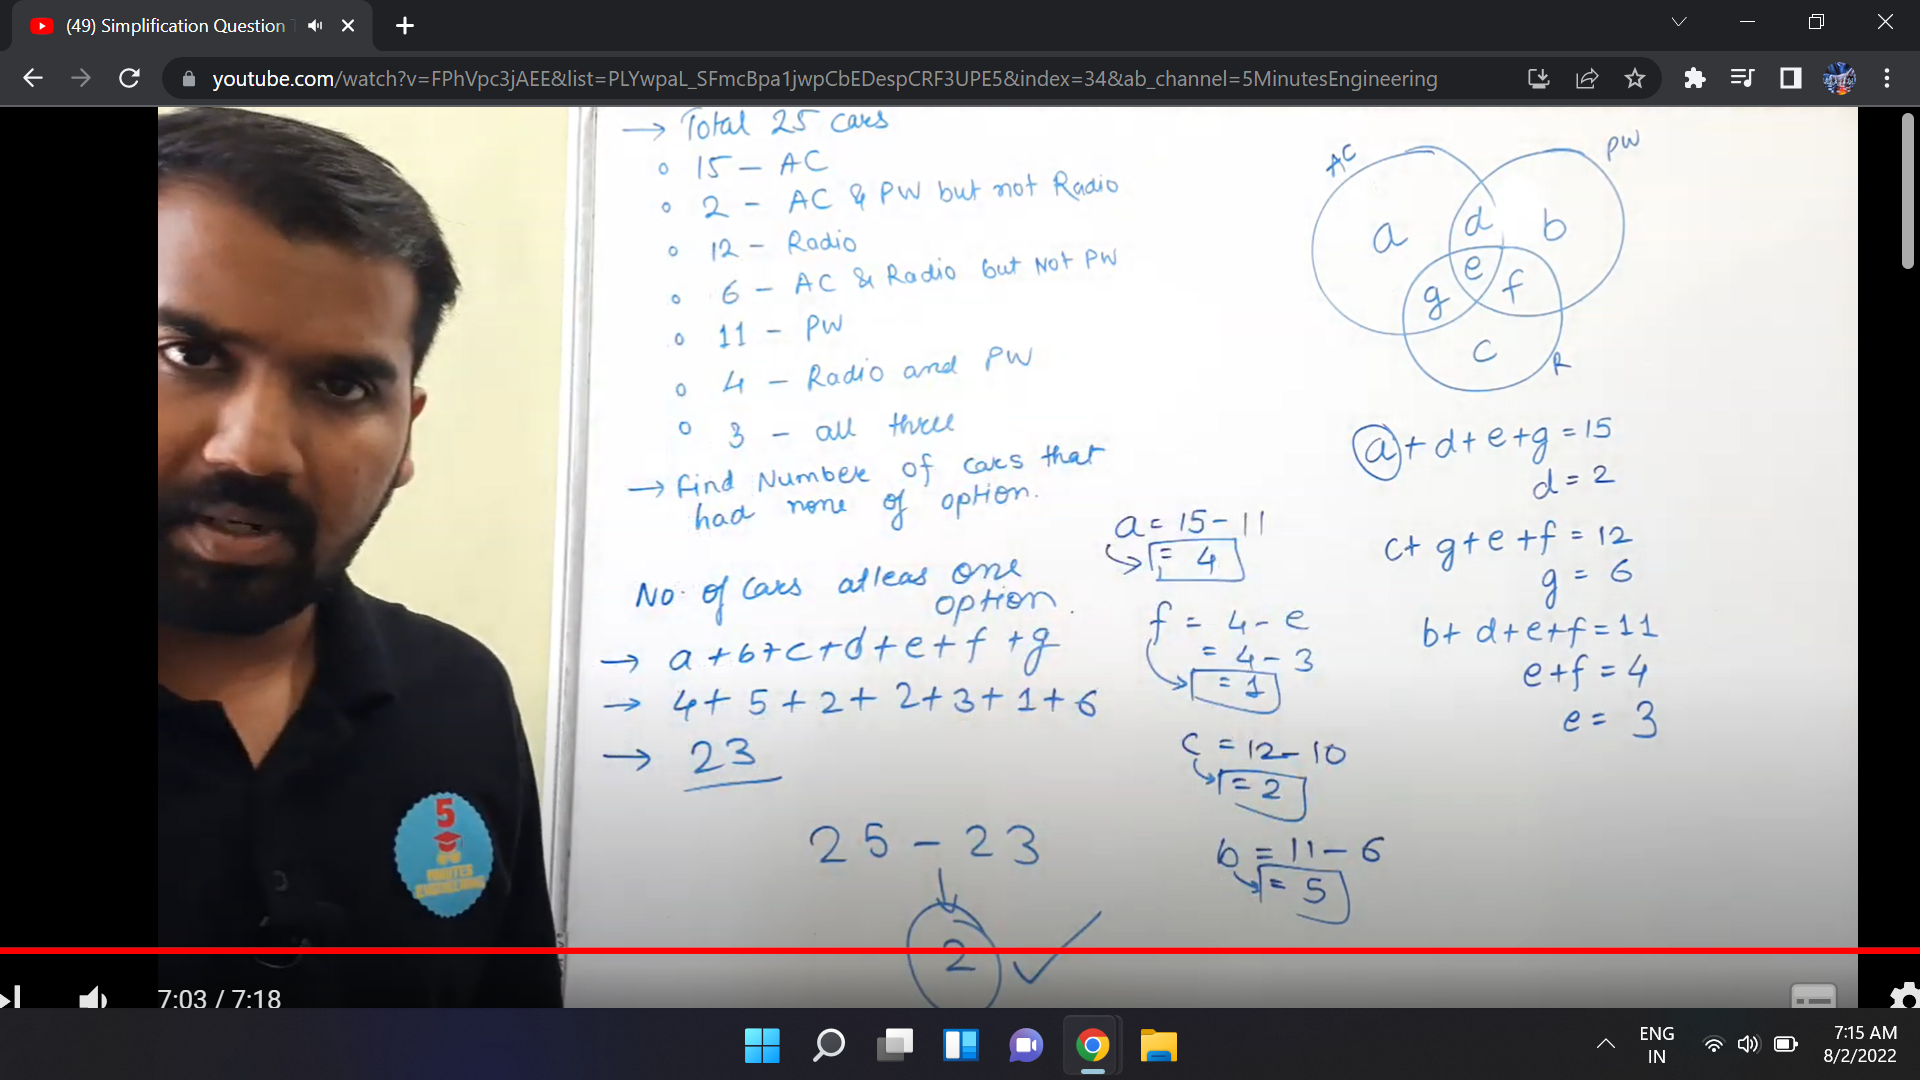 (49) Simplification Question T
youtube.com/watch?v=FPhVpc3jAEE&list=PLYwpaL_SFmcBpa1jwpCbEDespCRF3UPE5&index=34&ab_channel=5MinutesEngineering
→ Total 25 cars
15 - AC
2 - AC & PW but not Radio
12 - Radio
6 - AC & Radio but Not PW
11 - PW
4 - Radio and PW
3 - all three
→ Find Number of cars that
had none of option.
No. of cars atleas one
option.
→ a+b+c+d+e+f+g
→ 4+5+2+2+3+1+6
→ 23
25-23
2
AC
PW
a
d
b
e
g
f
c
R
a+d+e+g=15
d=2
c+g+e+f=12
g=6
b+d+e+f=11
e+f=4
e=3
a=15-11
=4
f=4-e
=4-3
=1
c=12-10
=2
b=11-6
=5
5
MINUTES
ENGINEERING
7:03 / 7:18
ENG
IN
7:15 AM
8/2/2022